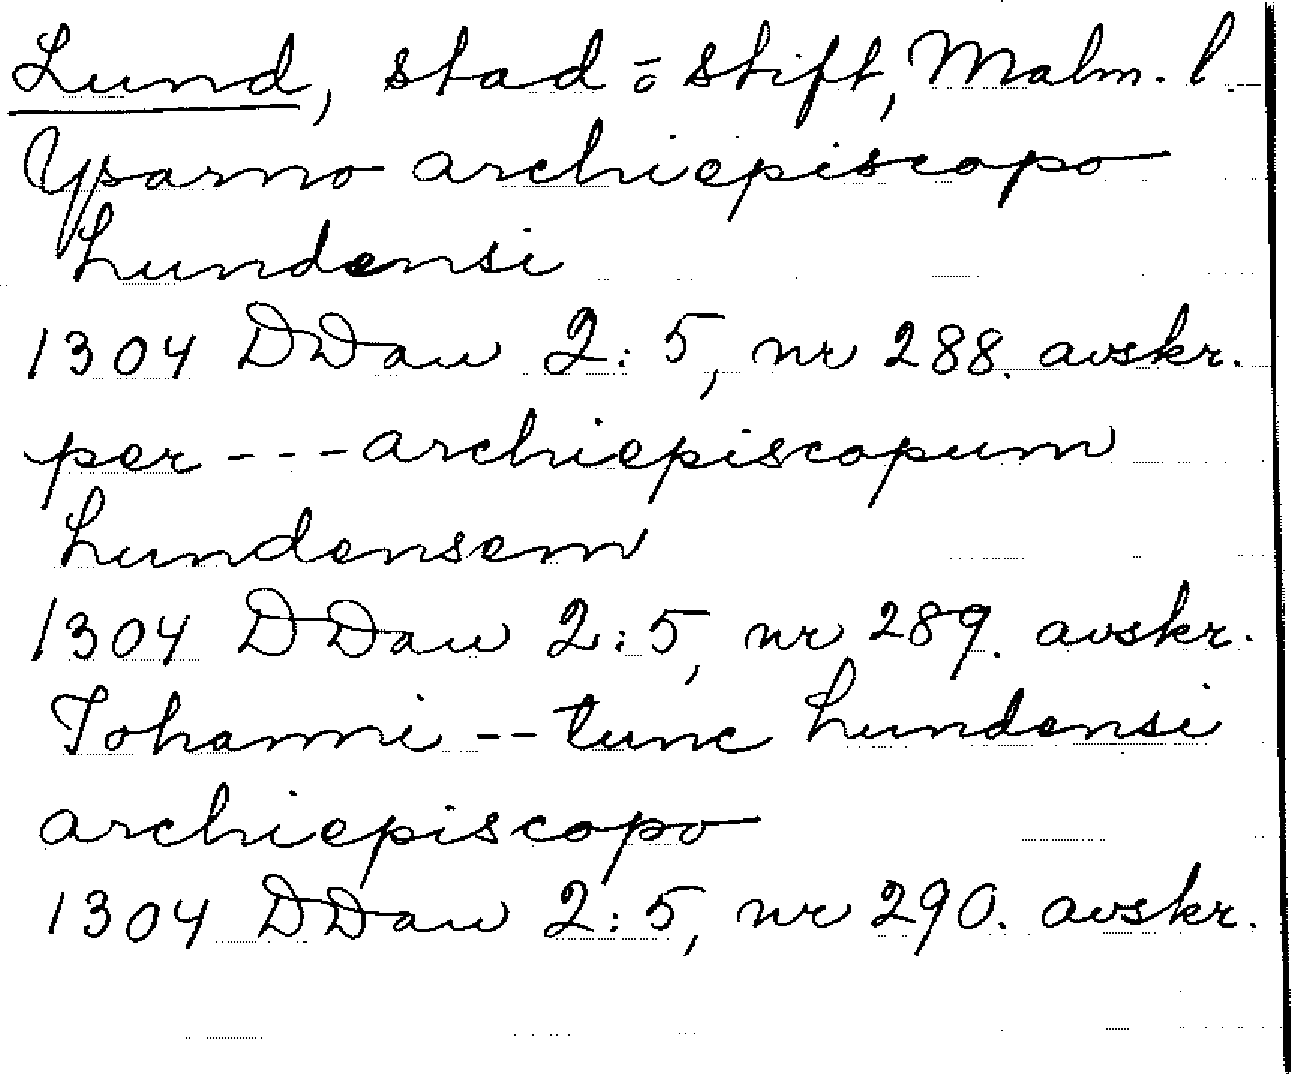 Lund, stad o stift, Malm. l.
Ysarno archiepiscopo
Lundensi
1304 DDan 2:5, nr 288. avskr.
per --- archiepiscopum
Lundensem
1304 DDan 2:5, nr 289. avskr.
Johanni -- tunc Lundensi
archiepiscopo
1304 DDan 2:5, nr 290. avskr.